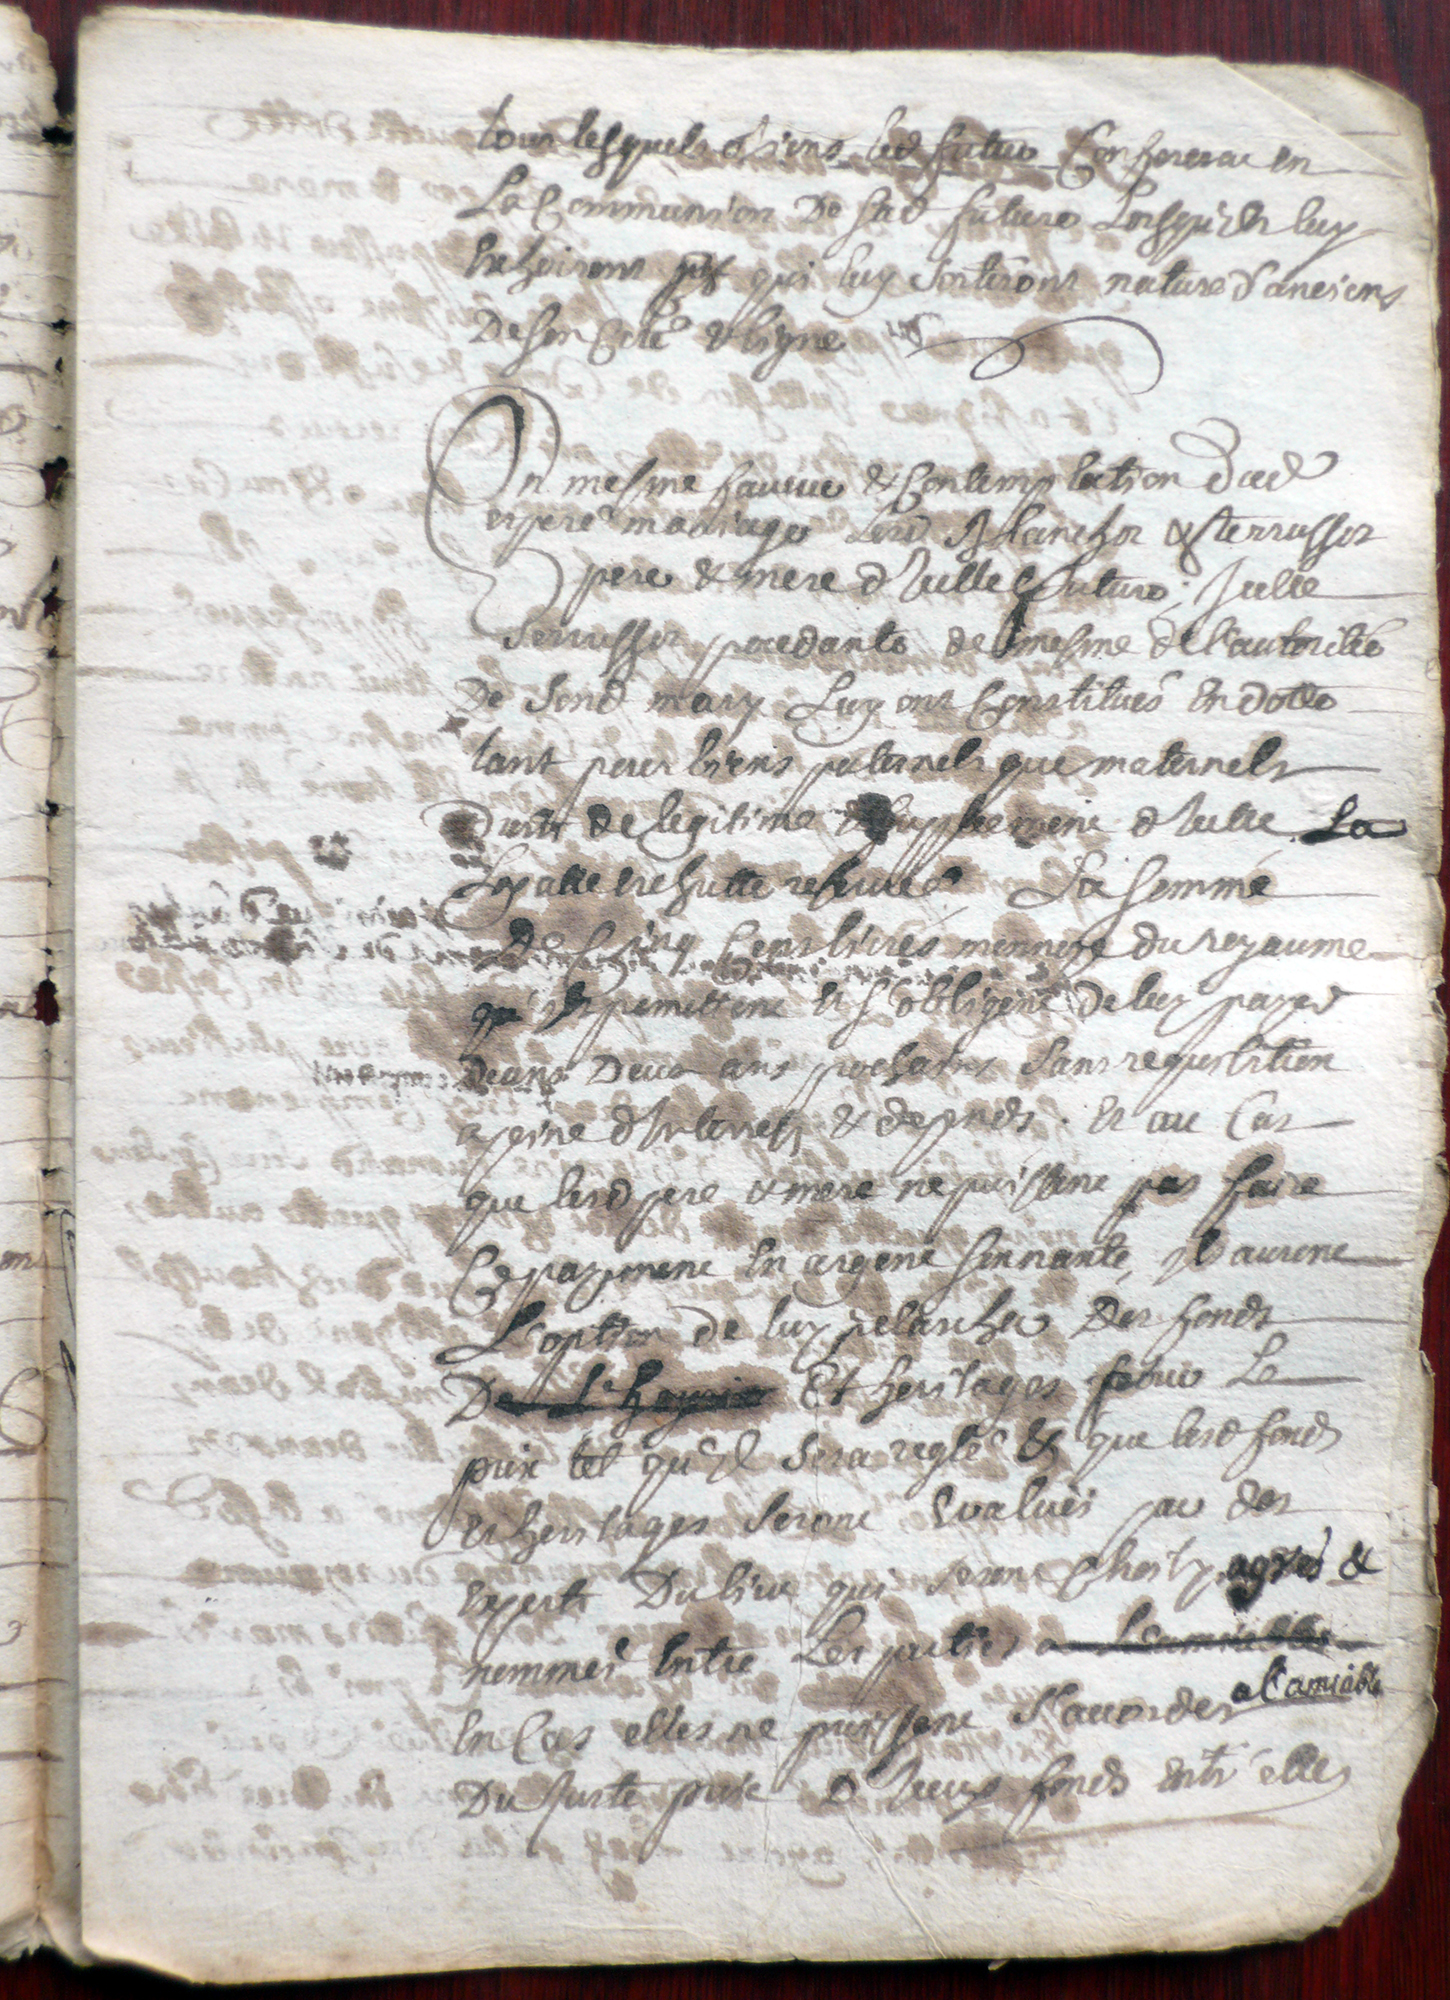 tous lesquels biens led futur Conferera en
La Communion De sad future Lorsqu'ils luy
Escheiront qui luy sortiront nature d'anciens
De son Coté & ligne
En mesme faveur & Contemplation dud
esperé mariage Lesd Blanchot & Terrasson
pere & mere d'Icelle future; Icelle
Terrasson procedante de mesme de l'autorité
De Sond mary Luy ont Constitués En dotte
tant pour biens paternels que maternels
Droits de legitime & supplement d'Icelle La
Loyalle Escheutte reservée La somme
de Cinq Cens livres monnoye du royaume
qu'ils promettent Et s'obligent De luy payer
Deans Deux ans prochains Sans requisition
a peine d'Interests & depends. Et au Cas
que lesd pere & mere ne puissent pas faire
Ce payement En argent sonnante, Ils auront
L'option de luy relascher Des fonds
De Et heritages pour Le
prix tel qu'il Sera reglé & que lesd fonds
et heritages seront Evalués par des
experts Du lieu qui seront Choisy agrés &
nommés Entre Les parties a l'amiable
En Cas elles ne puissent S'accorder a l'amiable
Du Juste prix D'Iceux fonds Entr'elles